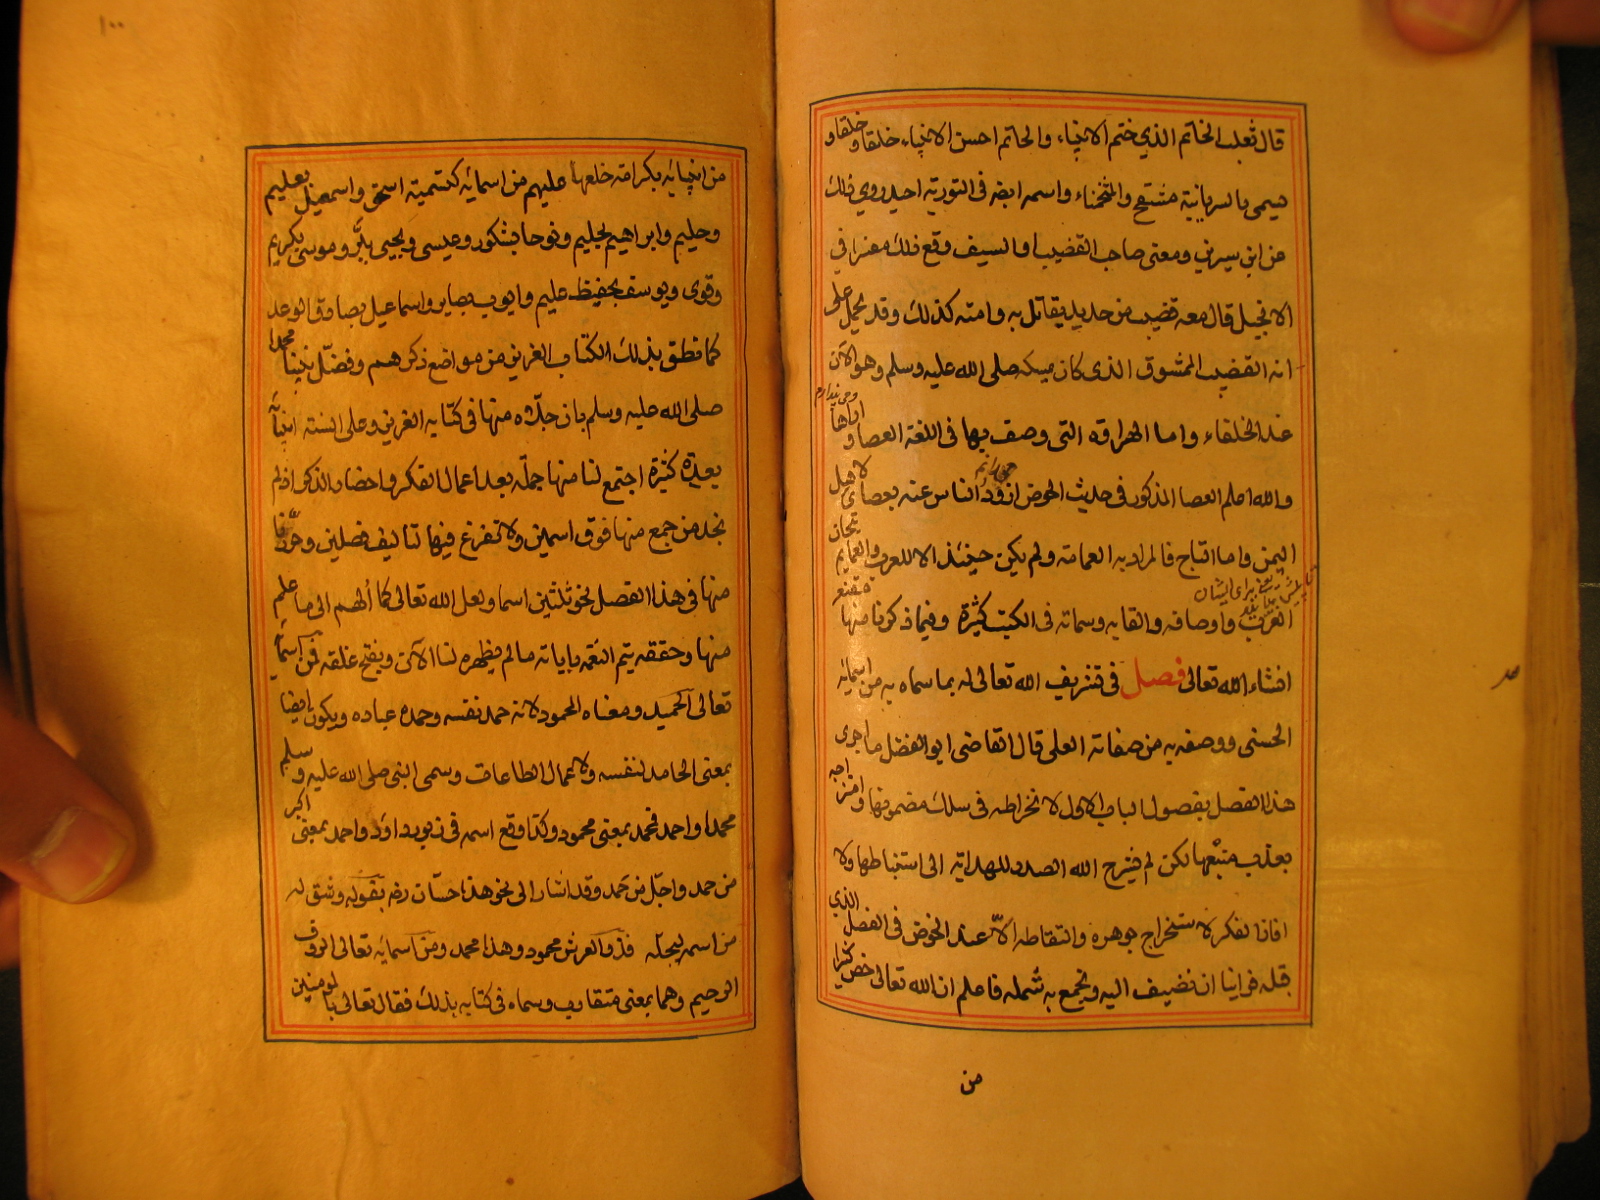 قال ثعلب الخاتم الذي ختم الانبياء والخاتم احسن الانبياء خلقا وخلقا و
يسمى بالسريانية مشفح والمنحمناء واسمه ايضا في التورية احيد روي ذلك
عن ابن سيرين ومعنى صاحب القضيب اى السيف وقع ذلك مفسرا في
الانجيل قال معه قضيب من حديد يقاتل به وامته كذلك وقد يحمل على
انه القضيب الممشوق الذى كان يمسكه صلى الله عليه وسلم وهو الآن
عند الخلفاء واما الهراوة التى وصف بها فى اللغة العصا و اراها
والله اعلم العصا المذكور فى حديث الحوض اذود الناس عنه بعصاى لاهل
اليمن واما التاج فالمراد به العمامة ولم يكن حينئذ الا للعرب والعمايم تيجان
العرب واوصافه والقابه وسماته فى الكتب كثيرة وفيما ذكرنا منها مقنع
انشاء الله تعالى فصل فى تشريف الله تعالى له بما سماه به من اسمائه
الحسنى ووصفه به من صفاته العلى قال القاضى ابو الفضل ما احرى
هذا الفصل بفصول الباب الاول لانخراطه فى سلك مضمونها وامتزاجه
بعذب منبعها لكن لم يشرح الله الصدر للهداية الى استنباطها ولا
افاد الفكر لاستخراج جوهره والتقاطه الا عند الخوض فى الفصل الذي
قبله فراينا ان نضيف اليه ونجمع به شمله فاعلم ان الله تعالى خص كثيرا
من
١٠٠
من انبيائه بكرامة خلعها عليهم من اسمائه كتسمية اسحق واسمعيل بعليم
وحليم وابراهيم بحليم ونوحا بشكور وعيسى ويحيى ببر وموسى بكريم
وقوى ويوسف بحفيظ عليم وايوب بصابر واسماعيل بصادق الوعد
كما نطق بذلك الكتاب العزيز من مواضع ذكرهم وفضل نبينا محمدا
صلى الله عليه وسلم بان حلاه منها فى كتابه العزيز وعلى السنة انبيائه
بعدة كثيرة اجتمع لنا منها جملة بعد اعمال الفكر واحضار الذكر اذ لم
نجد من جمع منها فوق اسمين ولا تفرغ فيها لتاليف فصلين وحررنا
منها فى هذا الفصل نحو ثلثين اسما ولعل الله تعالى كما الهم الى ما علم
منها وحققه يتم النعمة بابانة ما لم يظهره لنا الآن ويفتح غلقه فمن اسمائه
تعالى الحميد ومعناه المحمود لانه حمد نفسه وحمده عباده ويكون ايضا
بمعنى الحامد لنفسه ولاعمال الطاعات وسمى النبى صلى الله عليه وسلم
محمدا واحمد فمحمد بمعنى محمود وكذا وقع اسمه فى زبور داود واحمد بمعنى اكبر
من حمد واجل من حمد وقد اشار الى نحو هذا حسان رضه بقوله وشق له
من اسمه ليجله فذو العرش محمود وهذا محمد ومن اسمائه تعالى الروف
الرحيم وهما بمعنى متقارب وسماه فى كتابه بذلك فقال تعالى بالمومنين